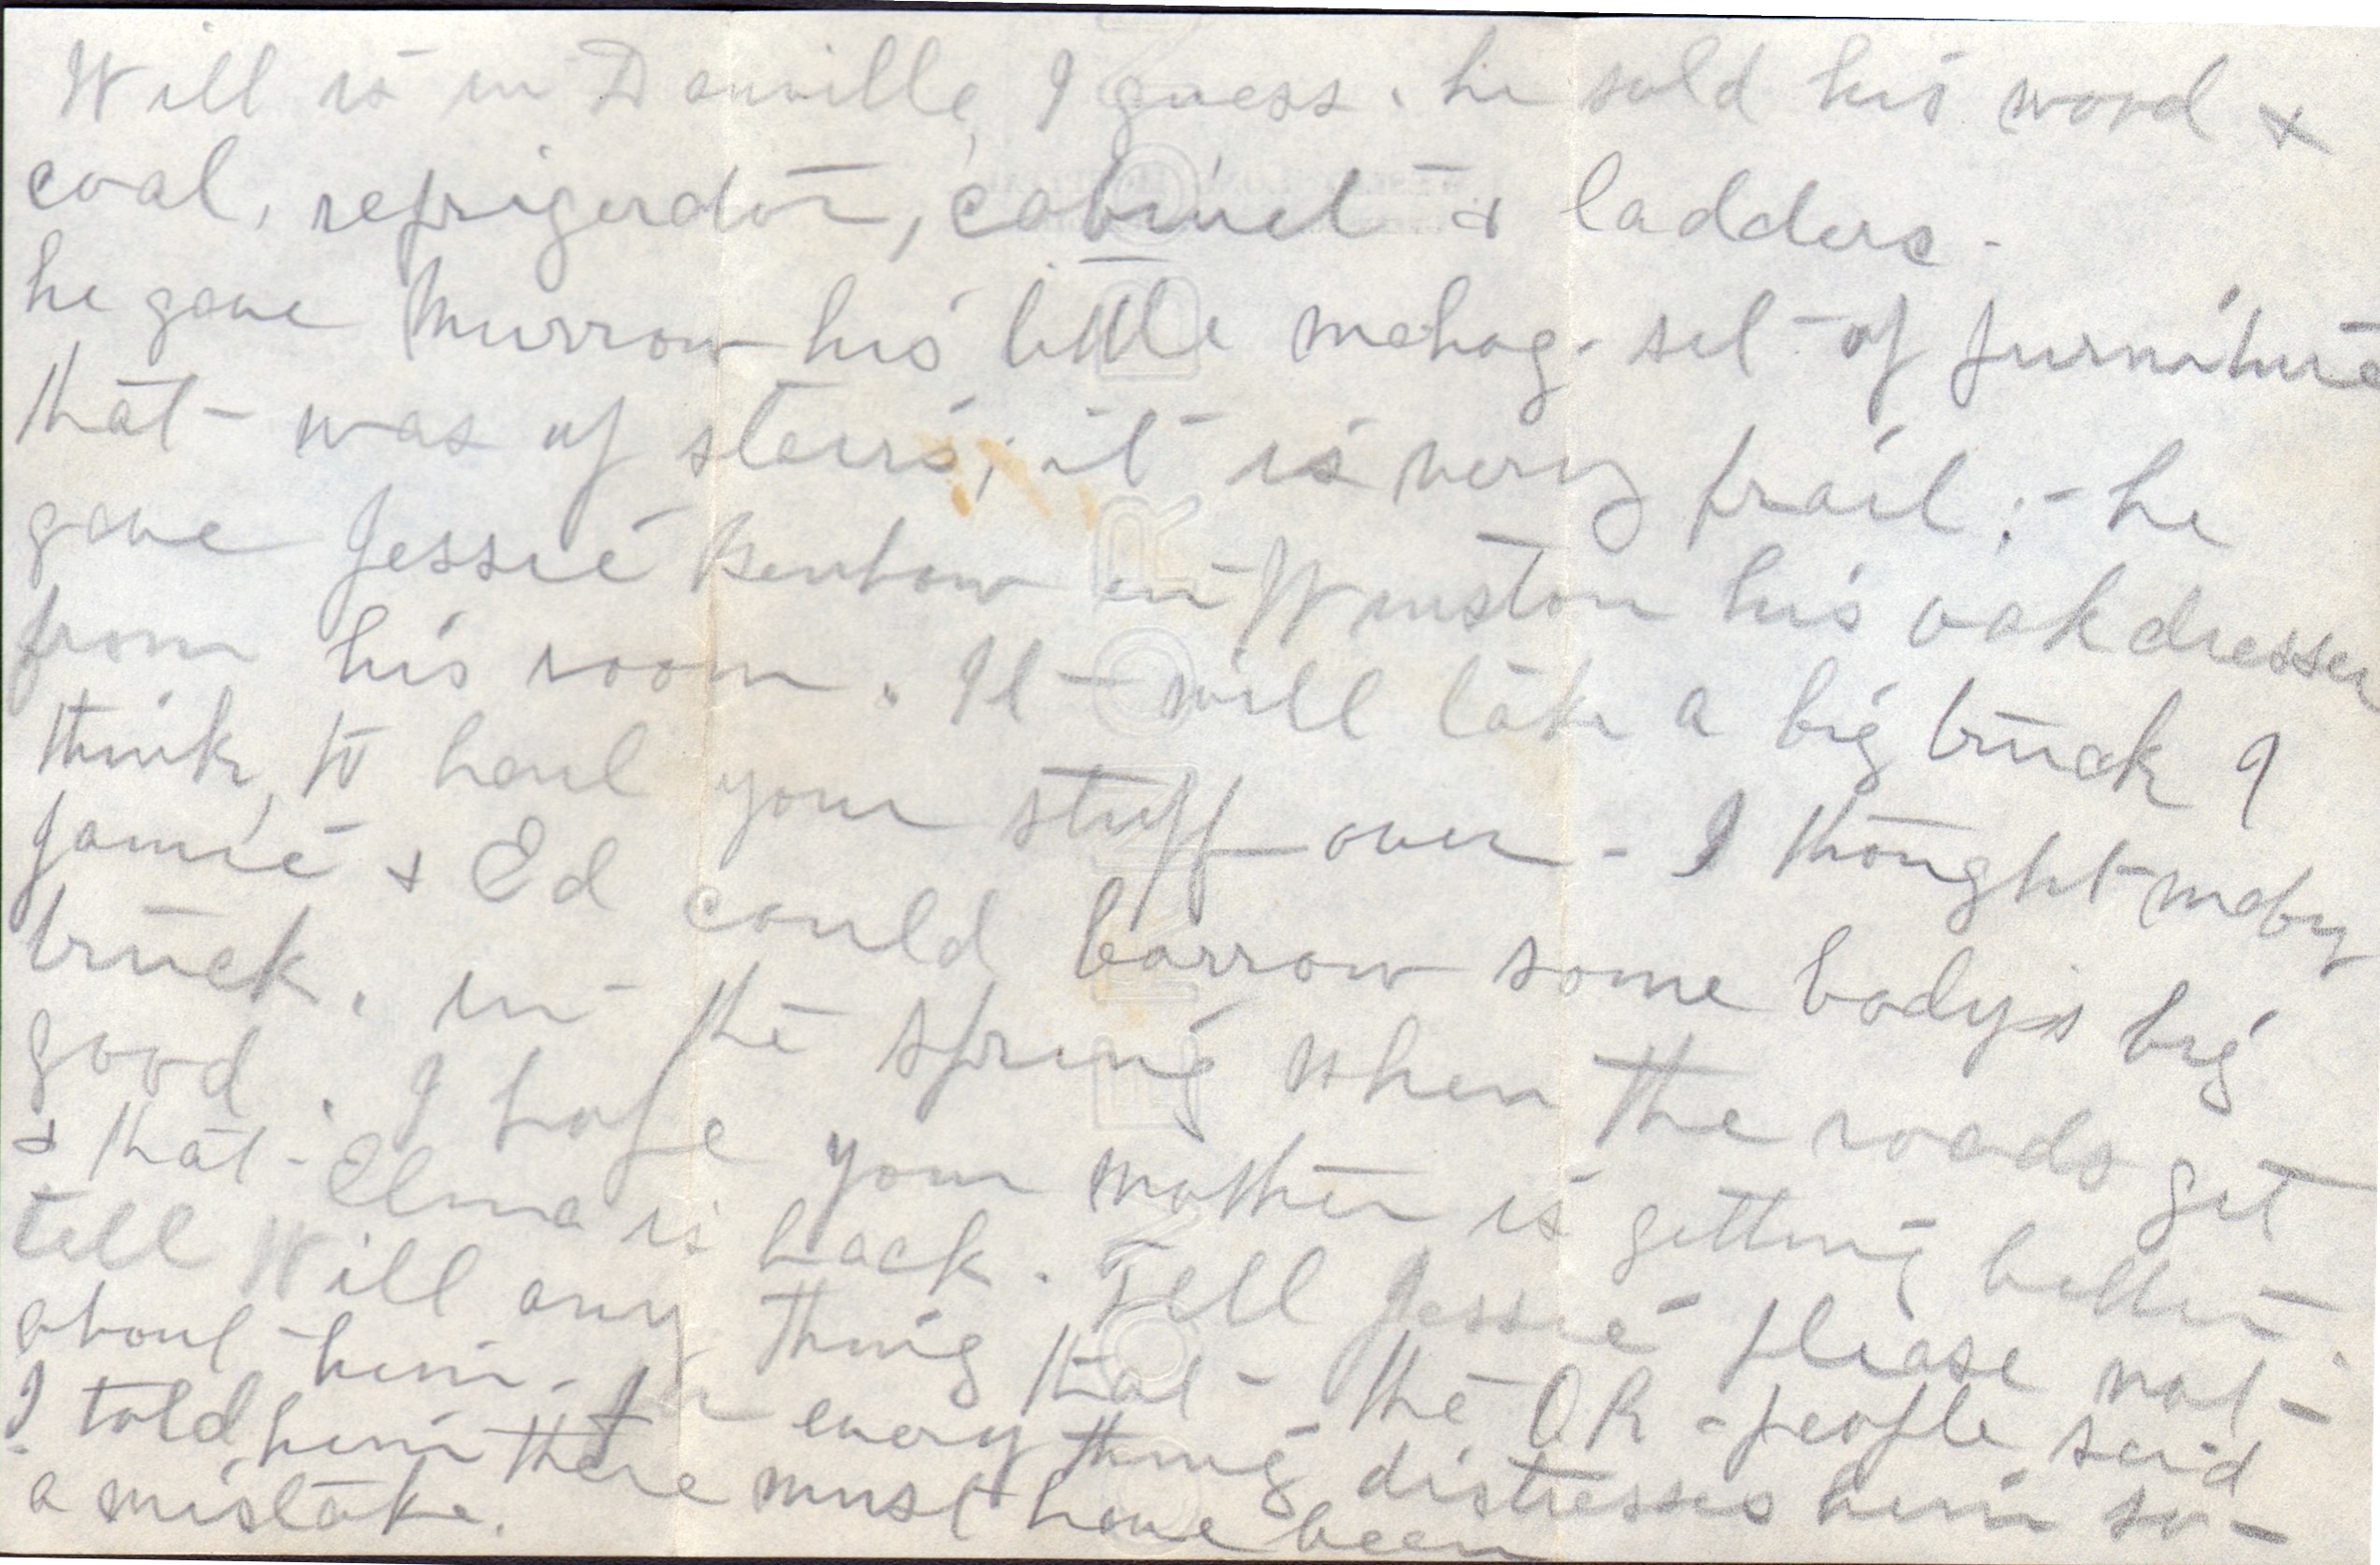 Will is in Danville, I guess. he sold his wood &
coal, refrigerator, cabinet & ladders -
he gave Murrow his little mahog. set of furniture
that - was up stairs; it is very frail; - he
gave Jessie Benbow in Winston his oak dresser
from his room. It will take a big truck I
think, to haul your stuff over - I thought maby
Jamie & Ed could borrow some body's big
truck. in the spring when the roads get
good. I hope your mother is getting better.
& that - Elma is back. Tell Jessie please not -
tell Will any thing that - the O.R. - people said
about him - for every thing distresses him so -
I told him there must have been
a mistake.